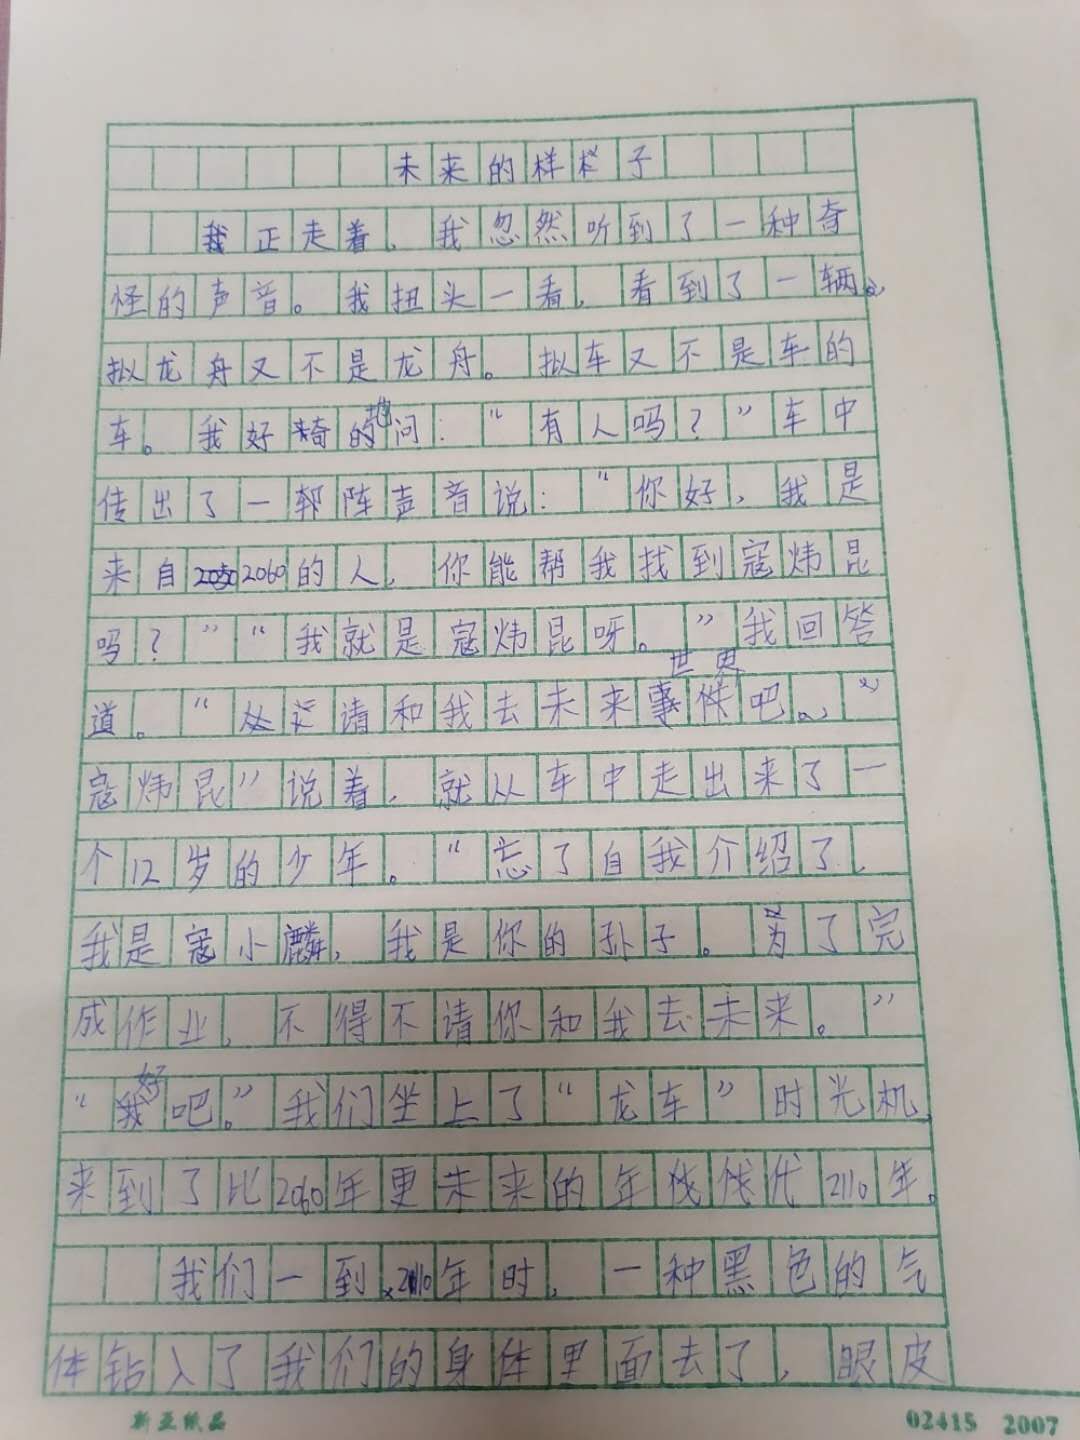 未来的样栏子
我正走着，我忽然听到了一种奇
怪的声音。我扭头一看，看到了一辆
拟龙舟又不是龙舟。拟车又不是车的
车。我好奇的地问：“有人吗？”车中
传出了一阵声音说：“你好，我是
来自2060的人，你能帮我找到寇炜昆
吗？”“我就是寇炜昆呀。”我回答
世界
道。“请和我去未来事件吧。”
寇炜昆”说着，就从车中走出来了一
个12岁的少年。“忘了自我介绍了，
我是寇小麟，我是你的孙子。为了完
成作业，不得不请你和我去未来。”
好
“我吧。”我们坐上了“龙车”时光机，
来到了比2060年更未来的年代2110年。
我们一到2110年时，一种黑色的气
体钻入了我们的身体里面去了，眼皮
新亚纸品
02415 2007